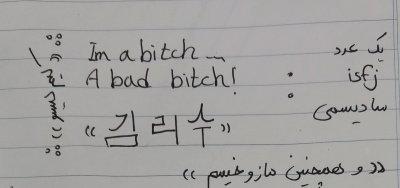 Im a bitch ...
A bad bitch!
«김리수»
یک عدد
isfj
سادیسمی
((و همچنین مازوخیسم))